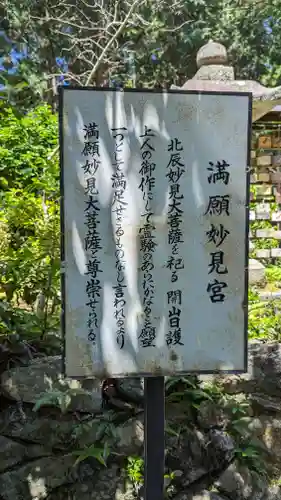 満願妙見宮
北辰妙見大菩薩を祀る 開山日護
上人の御作にして霊験のあらたかなること願望
一つとして満足せざるものなしと言われるより
満願妙見大菩薩と尊崇せられる。